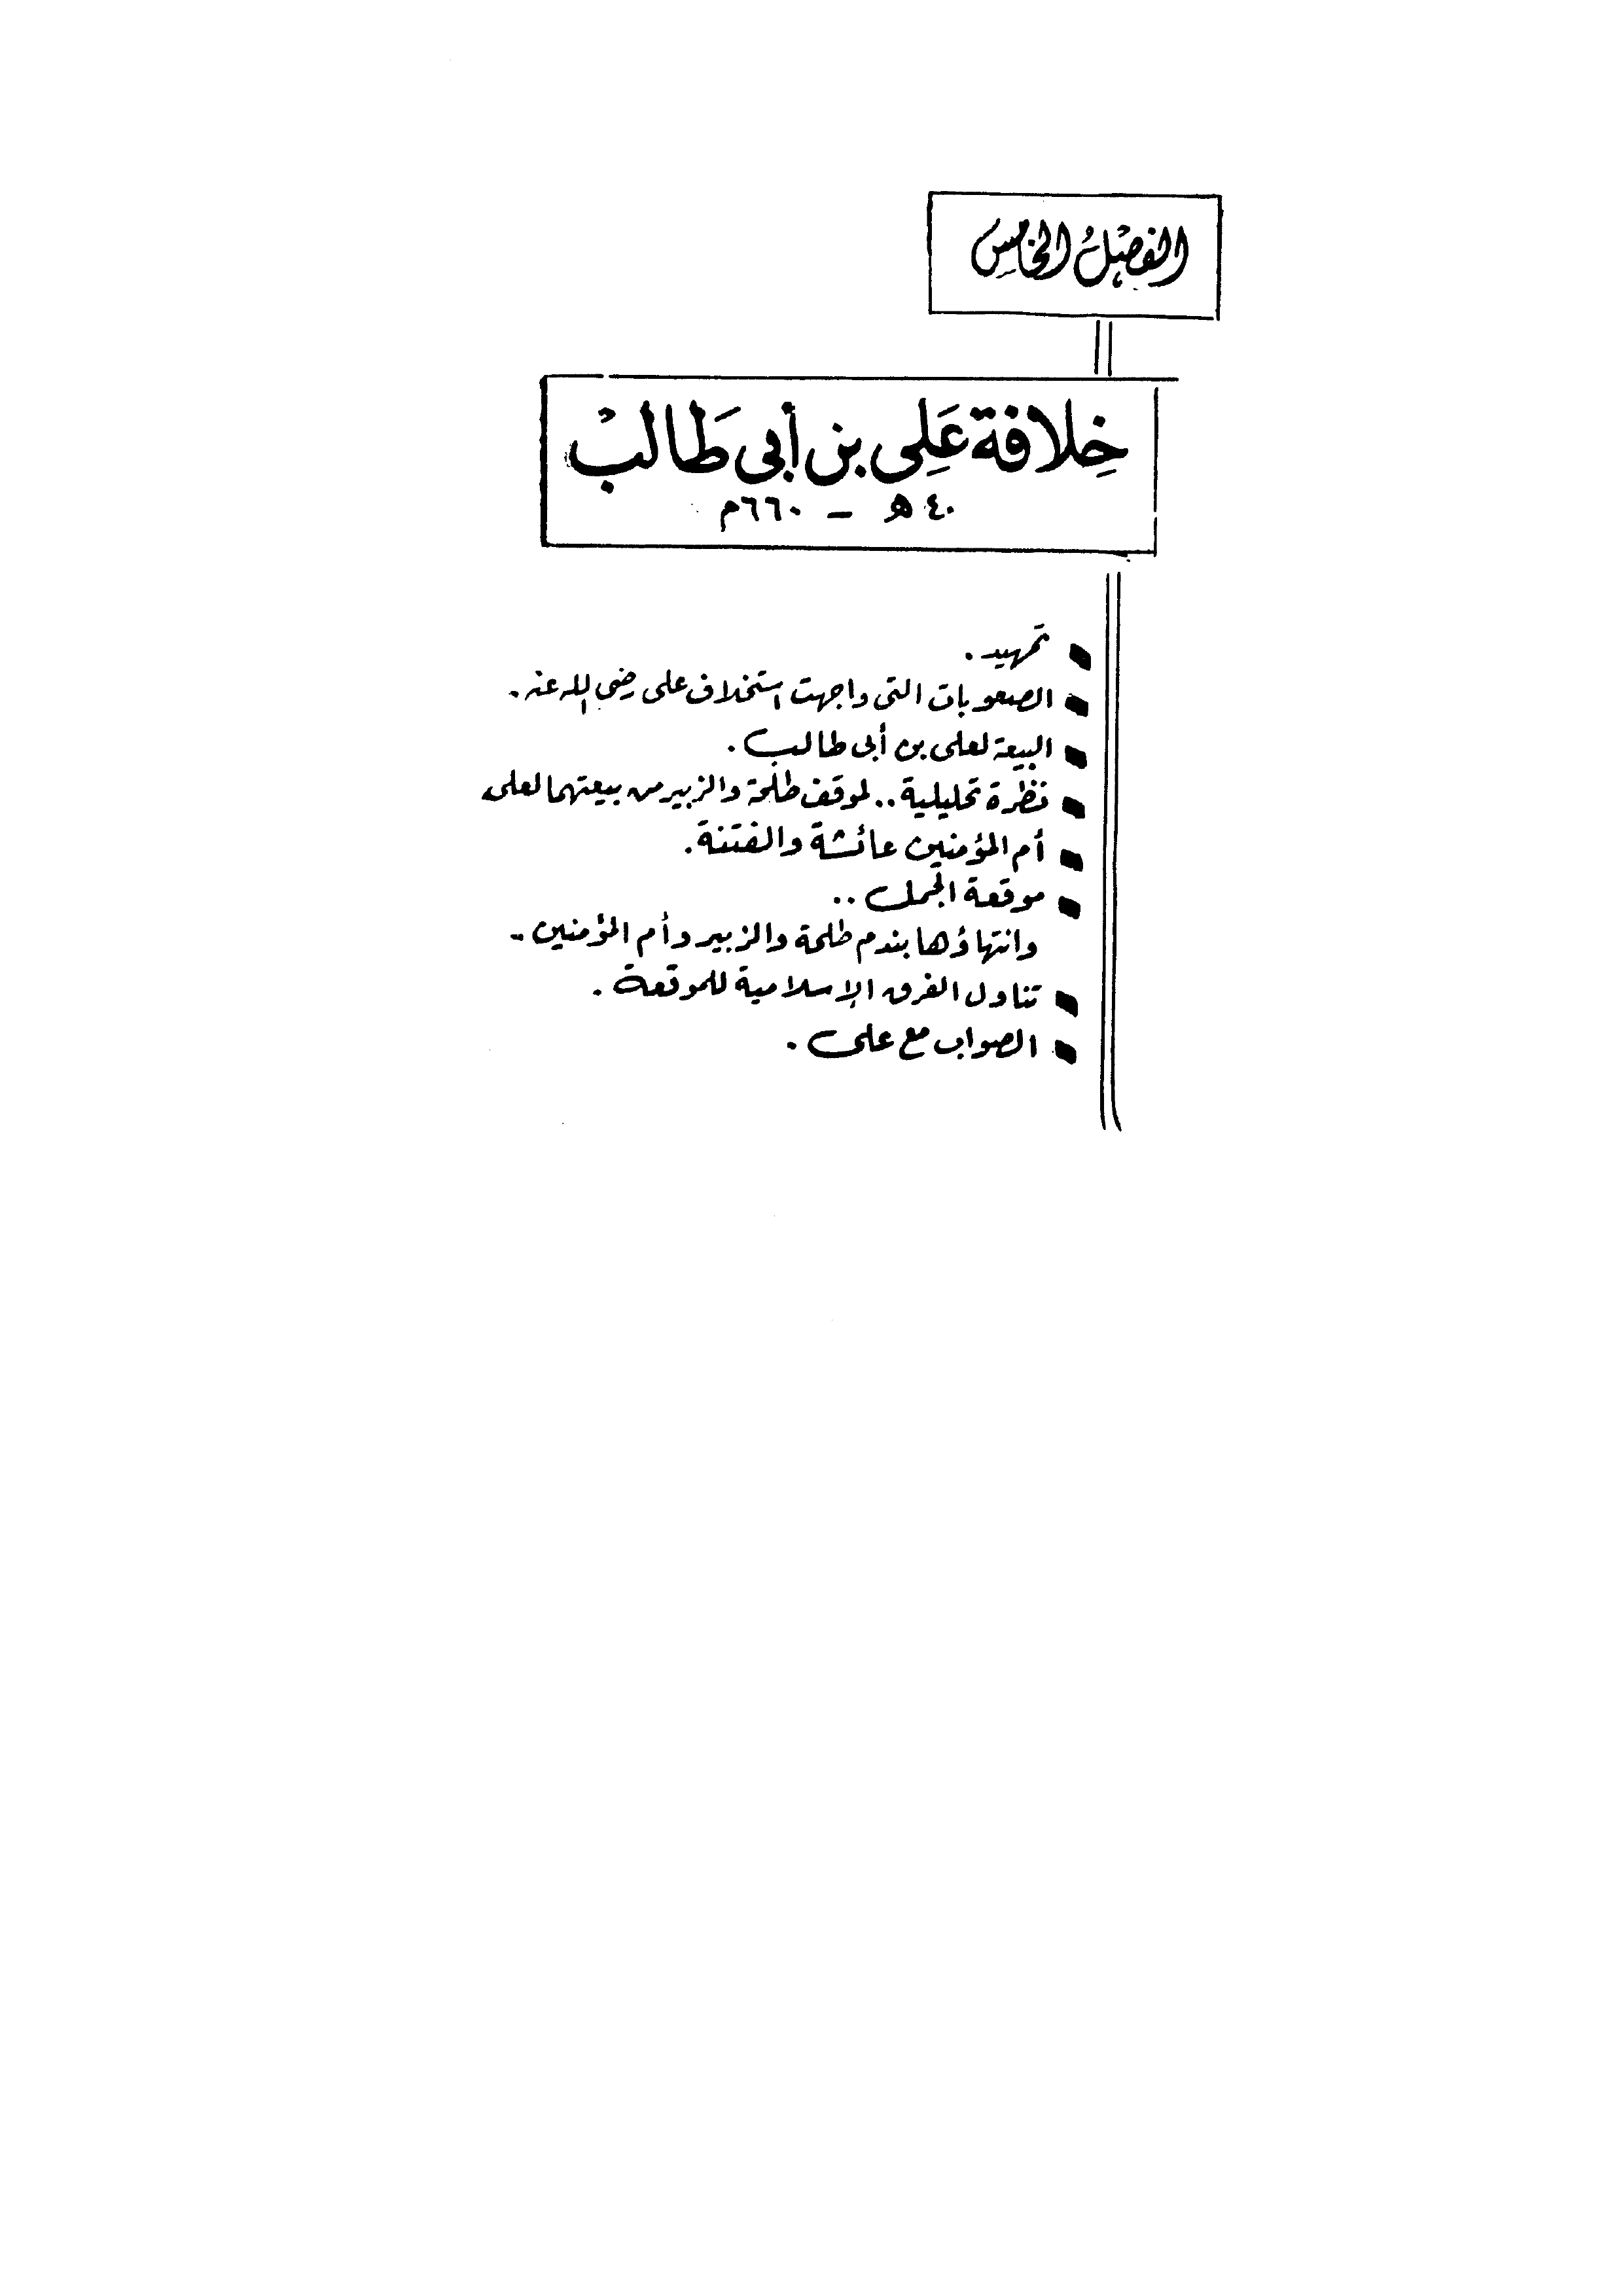 الفصْلُ الخامِس
خِلافة عَلِى بن أبى طَالبْ
٤٠ هـ – ٦٦٠م
تمهيد .
الصعوبات التى واجهت استخلاف على رضى الله عنه .
البيعة لعلى بن أبى طالب .
نظرة تحليلية .. لموقف طلحة والزبير من بيعتهما لعلى
أم المؤمنين عائشة والفتنة .
موقعة الجمل ..
وانتهاؤها بندم طلحة والزبير وأم المؤمنين ..
تناول الفرق الإسلامية للموقعة .
الصواب مع على .